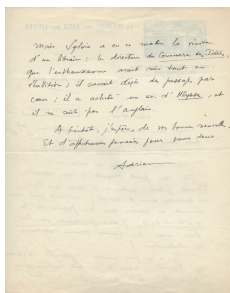 Mais Sylvia a eu ce matin la visite
d'un libraire : le directeur du Commerce des Idées,
que l'enthousiasme avait mis tout en
ébullition ; il savait déjà des passages par
cœur ; il a acheté un ex. d'Ulysse, et
il ne sait pas l'anglais.
A bientôt, j'espère, de vos bonnes nouvelles
Et d'affectueuses pensées pour vous deux.
Adrienne